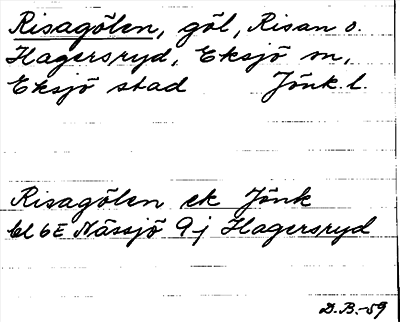 Risagölen, göl, Risan o.
Hagersryd, Eksjö sn,
Eksjö stad Jönk. l.
Risagölen ek Jönk
bl 6E Nässjö 9j Hagersryd
D.B.-59